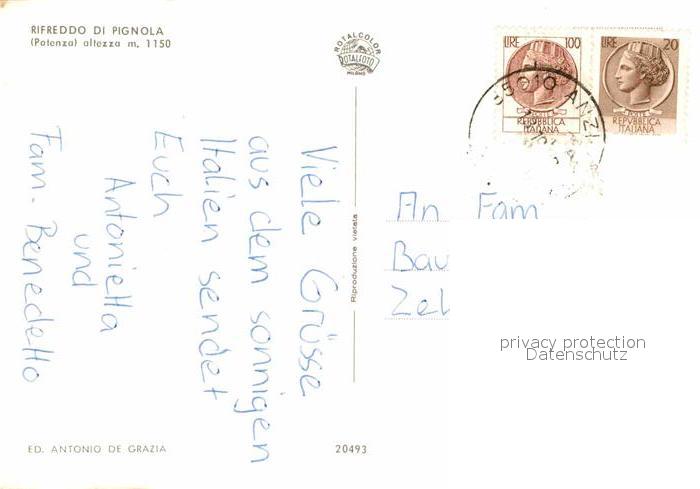 RIFREDDO DI PIGNOLA
(Potenza) altezza m. 1150
ROTALCOLOR
ROTALFOTO
MILANO
LIRE 100
POSTE
REPVBBLICA
ITALIANA
LIRE 20
POSTE
REPVBBLICA
ITALIANA
85010 ANZI
Viele Grüsse
aus dem sonnigen
Italien sendet
Euch
Antoniella
und
Fam. Benedetto
Riproduzione vietata
An Fam
Bau
Zel
privacy protection
Datenschutz
ED. ANTONIO DE GRAZIA
20493